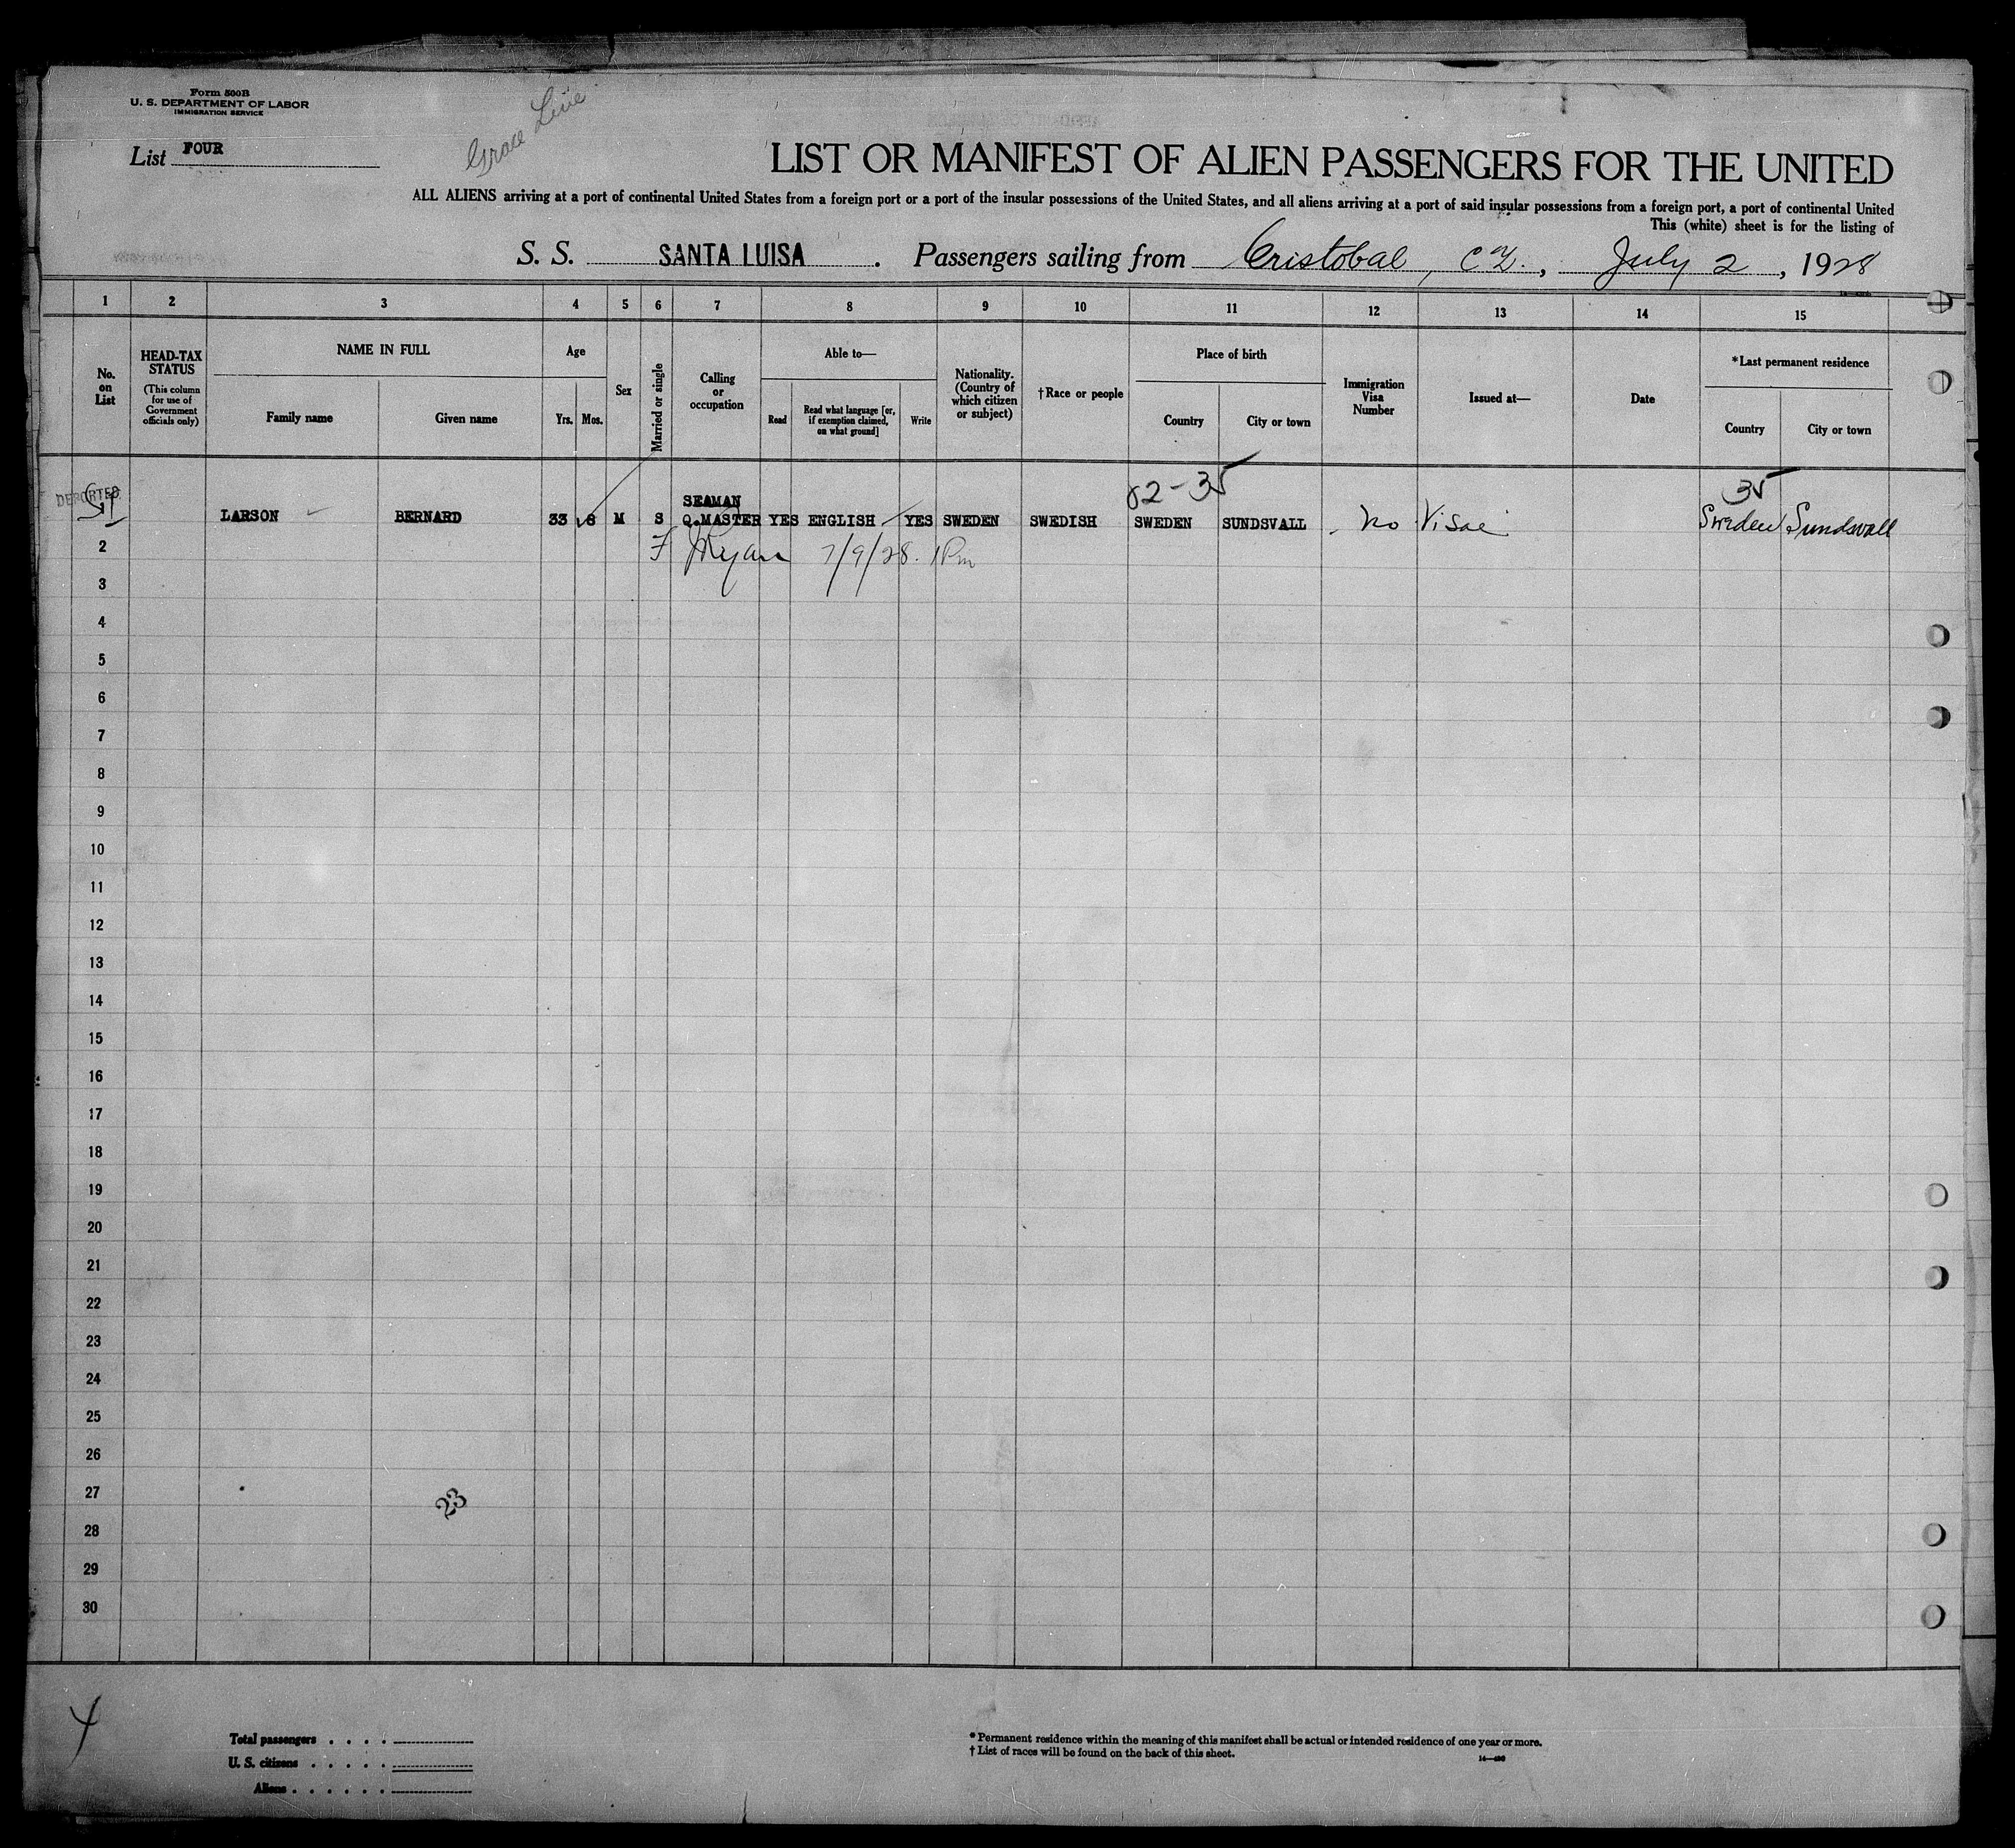 Form 500B
U. S. DEPARTMENT OF LABOR
IMMIGRATION SERVICE
List FOUR
Grace Line
LIST OR MANIFEST OF ALIEN PASSENGERS FOR THE UNITED
ALL ALIENS arriving at a port of continental United States from a foreign port or a port of the insular possessions of the United States, and all aliens arriving at a port of said insular possessions from a foreign port, a port of continental United
This (white) sheet is for the listing of
S. S. SANTA LUISA. Passengers sailing from Cristobal, C Z., July 2, 1928
1 2 3 4 5 6 7 8 9 10 11 12 13 14 15
No. on List
HEAD-TAX STATUS
(This column for use of Government officials only)
NAME IN FULL
Family name
Given name
Age
Yrs.
Mos.
Sex
Married or single
Calling or occupation
Able to—
Read
Read what language [or, if exemption claimed, on what ground]
Write
Nationality. (Country of which citizen or subject)
†Race or people
Place of birth
Country
City or town
Immigration Visa Number
Issued at—
Date
*Last permanent residence
Country
City or town
DEPORTED
62-35
35
SEAMAN
LARSON BERNARD 33 8 M S Q.MASTER YES ENGLISH YES SWEDEN SWEDISH SWEDEN SUNDSVALL No Visae Sweden Sundsvall
2 F Ryan 7/9/28. 1Pm
3
4
5
6
7
8
9
10
11
12
13
14
15
16
17
18
19
20
21
22
23
24
25
26
27
23
28
29
30
4
Total passengers . . . .
U. S. citizens . . . . .
Aliens . . . . . .
* Permanent residence within the meaning of this manifest shall be actual or intended residence of one year or more.
† List of races will be found on the back of this sheet.